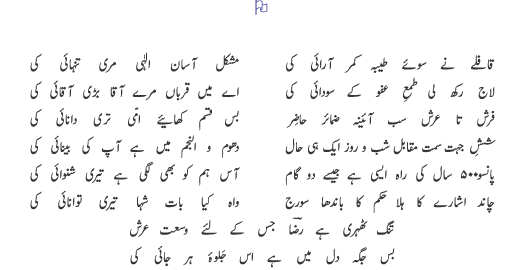 قافلے نے سوئے طیبہ کمر آرائی کی مشکل آسان الٰہی مری تنہائی کی
لاج رکھ لی طمعِ عفو کے سودائی کی اے میں قرباں مرے آقا بڑی آقائی کی
فرش تا عرش سب آئینہ ضمائر حاضر بس قسم کھائیے اُمّی تری دانائی کی
شش جہت سمت مقابل شب و روز ایک ہی حال دھوم و النجم میں ہے آپ کی بینائی کی
پانسو۵۰۰ سال کی راہ ایسی ہے جیسے دو گام آس ہم کو بھی لگی ہے تیری شنوائی کی
چاند اشارے کا ہلا حکم کا باندھا سورج واہ کیا بات شہا تیری توانائی کی
تنگ ٹھہری ہے رضؔا جس کے لئے وسعت عرش
بس جگہ دل میں ہے اس جلوۂ ہر جائی کی